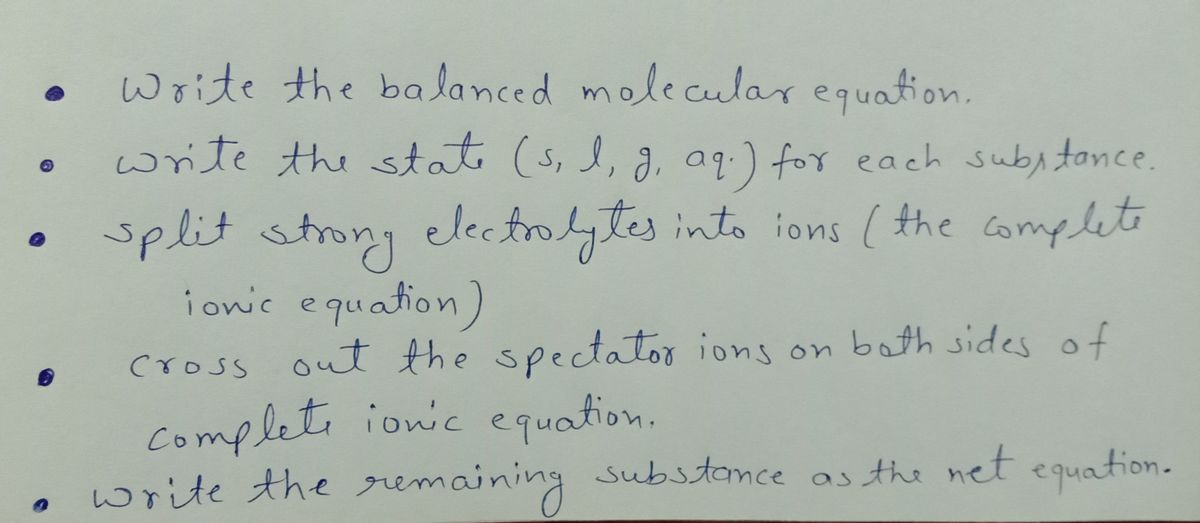 • Write the balanced molecular equation.
• write the state (s, l, g, aq.) for each substance.
• split strong electrolytes into ions (the complete
ionic equation)
• cross out the spectator ions on both sides of
complete ionic equation.
• write the remaining substance as the net equation.